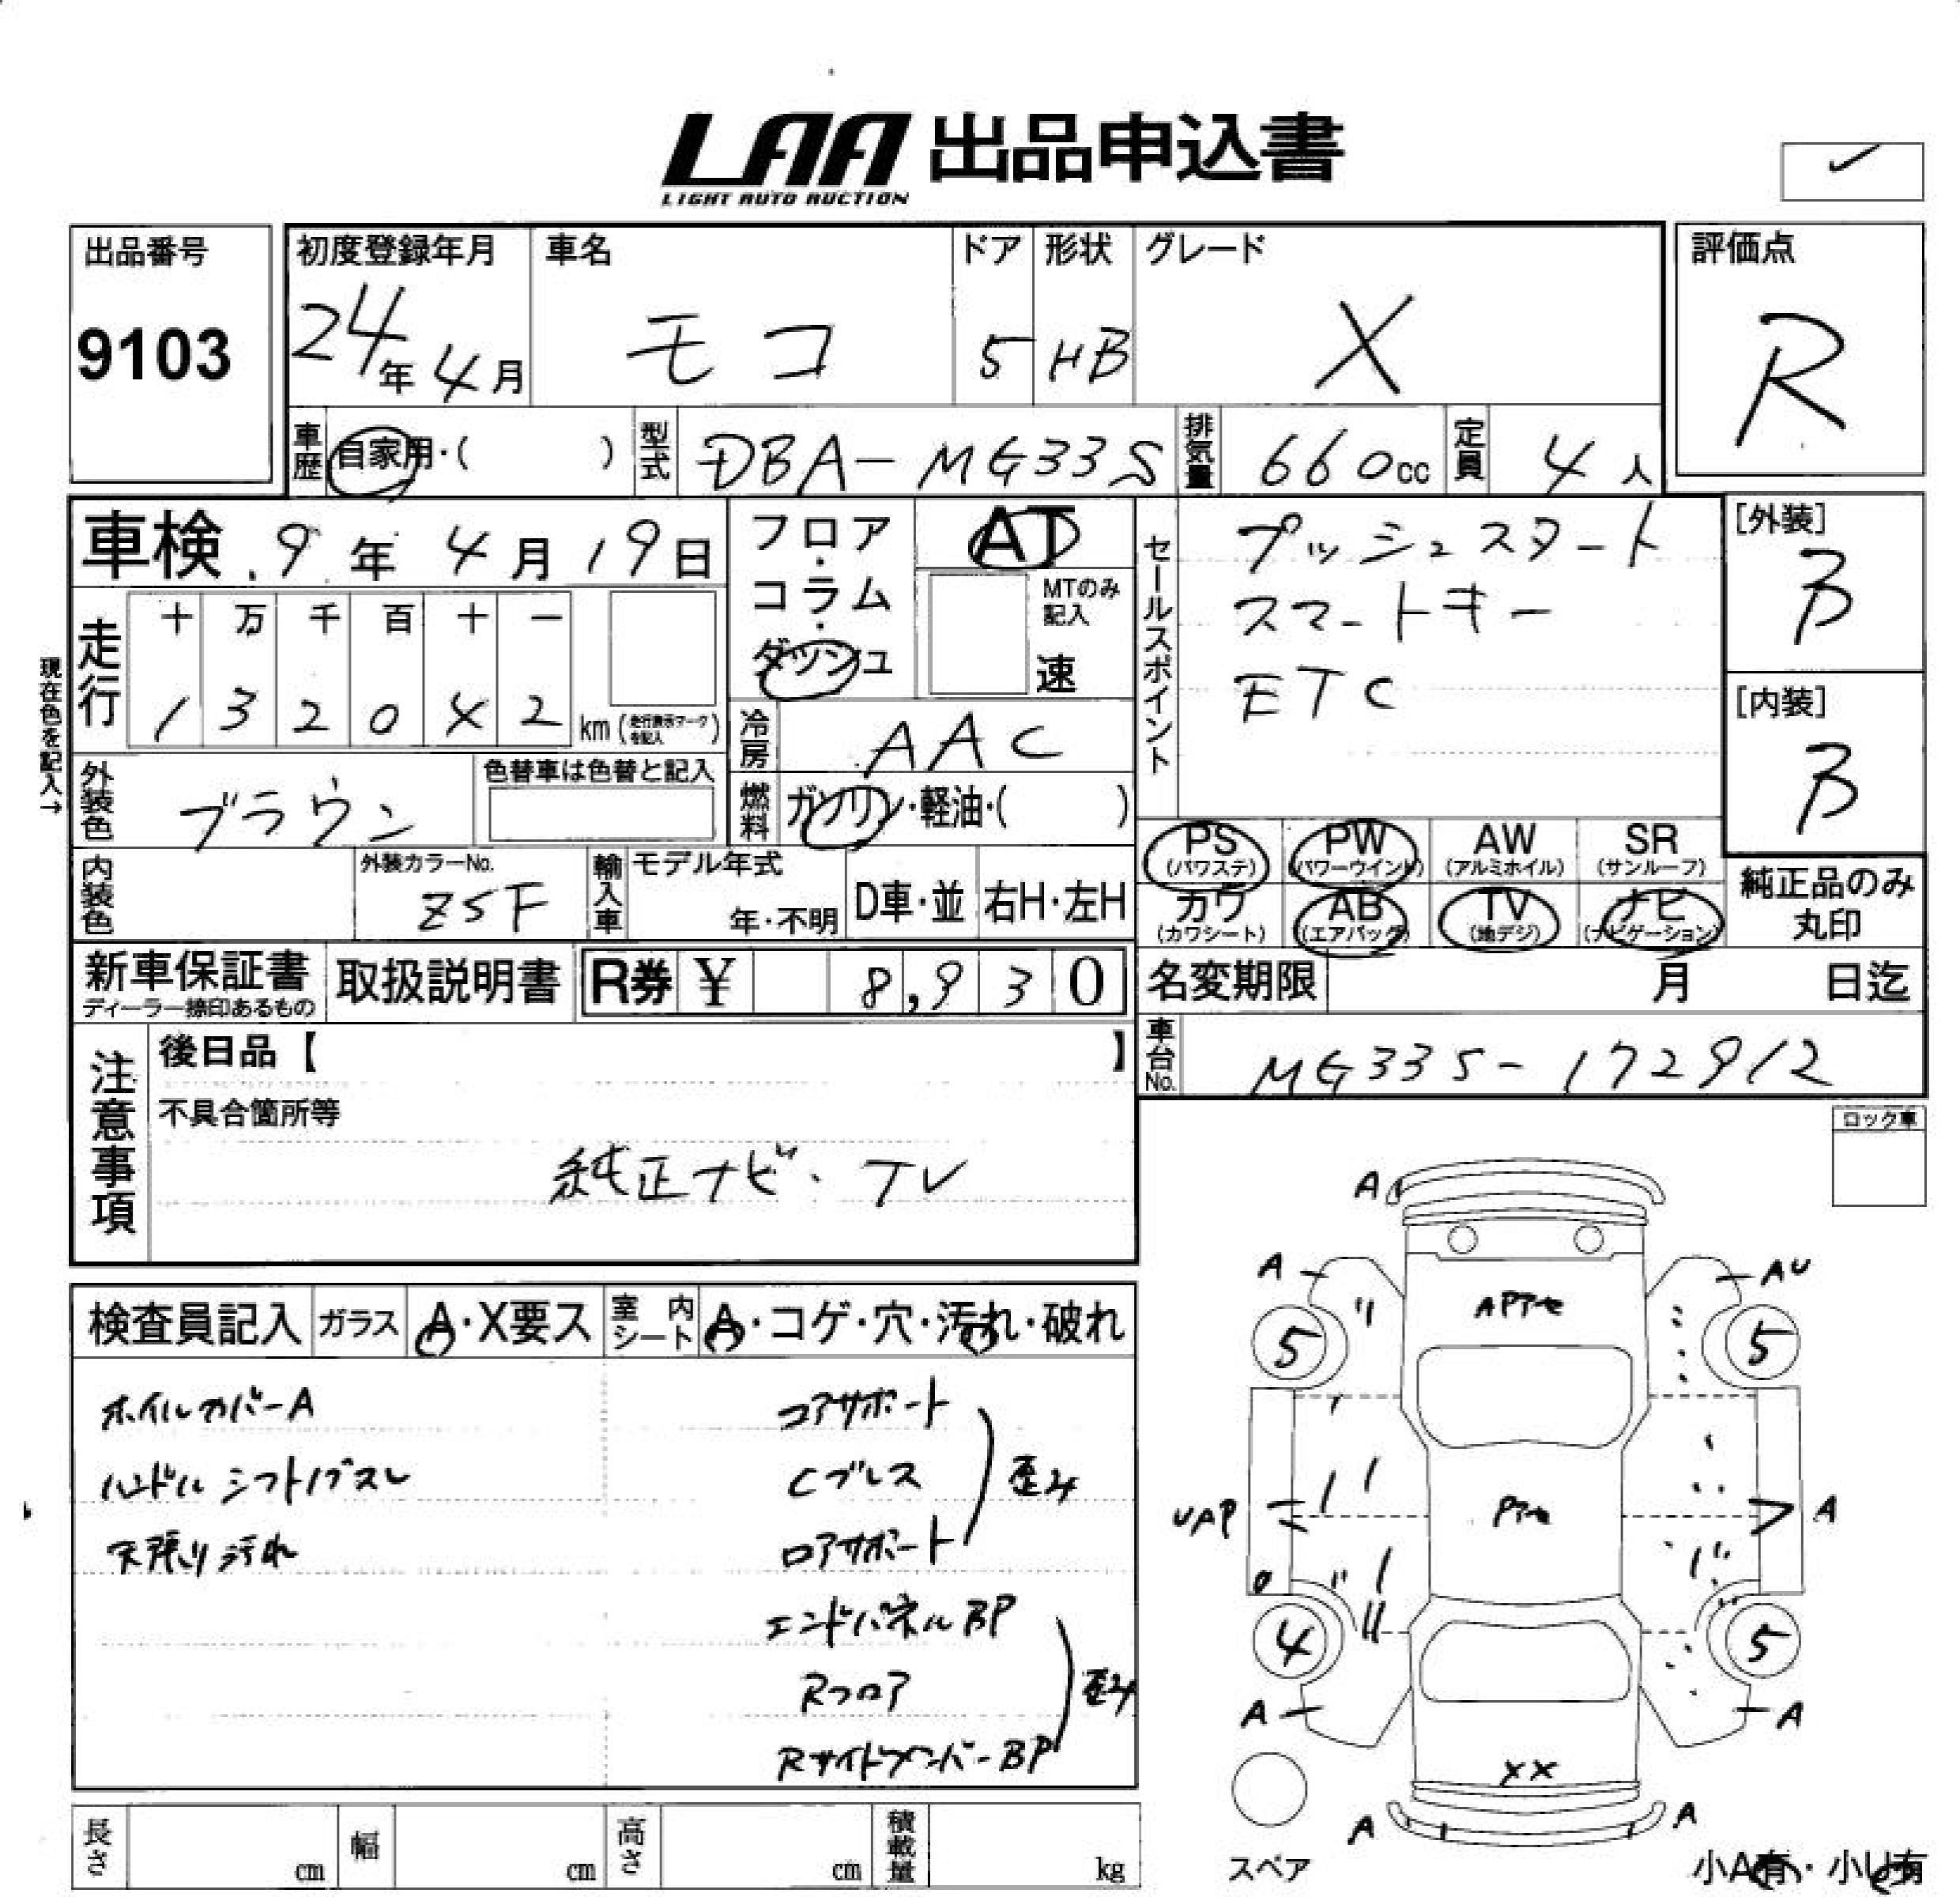 LAA 出品申込書
LIGHT AUTO AUCTION
出品番号
9103
初度登録年月
24年 4月
車名
モコ
ドア
5
形状
HB
グレード
X
評価点
R
車歴
自家用・( )
型式
DBA-MG33S
排気量
660cc
定員
4人
車検 9年 4月 19日
フロア・コラム・ダッシュ
AT
MTのみ記入
速
セールスポイント
プッシュスタート
スマートキー
ETC
[外装]
B
[内装]
B
現在色を記入→
走行
十 万 千 百 十 一
1 3 2 0 4 2 km (走行表示マークを記入)
冷房
AAC
燃料
ガソリン・軽油・( )
外装色
ブラウン
色替車は色替と記入
内装色
外装カラーNo.
Z5F
輸入車
モデル年式
年・不明
D車・並
右H・左H
PS (パワステ)
PW (パワーウインド)
AW (アルミホイル)
SR (サンルーフ)
カワ (カワシート)
AB (エアバッグ)
TV (地デジ)
ナビ (ナビゲーション)
純正品のみ丸印
新車保証書
ディーラー捺印あるもの
取扱説明書
R券 ¥ 8,930
名変期限 月 日迄
車台No.
MG33S-172912
注意事項
後日品【 】
不具合箇所等
純正ナビ・TV
ロック車
検査員記入
ガラス
A・X要ス
室内シート
A・コゲ・穴・汚れ・破れ
ホイルカバーA
ハンドル シフトノブスレ
天張り汚れ
コアサポート
Cブレス
ロアサポート
歪み
エンドパネルBP
Rフロア
RサイドメンバーBP
歪み
A
A
AU
APアセ
5
5
UAP
Pアセ
A
4
5
A
A
XX
A
A
スペア
小A有・小U有
長さ cm
幅 cm
高さ cm
積載量 kg